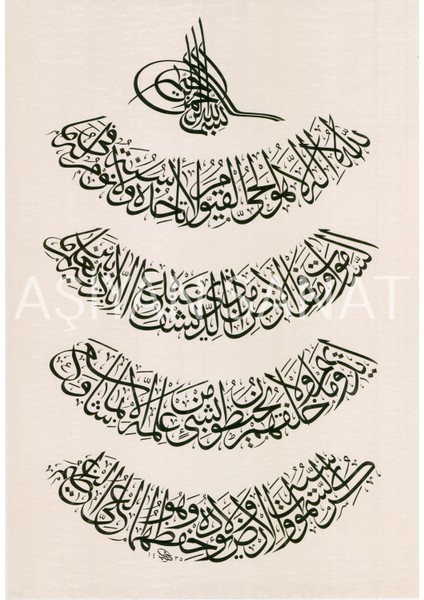 بسم الله الرحمن الرحيم
الله لا اله الا هو الحي القيوم لا تأخذه سنة ولا نوم له ما في
السموات وما في الارض من ذا الذي يشفع عنده الا باذنه يعلم ما بين
ايديهم وما خلفهم ولا يحيطون بشئ من علمه الا بما شاء وسع
كرسيه السموات والارض ولا يؤده حفظهما وهو العلي العظيم